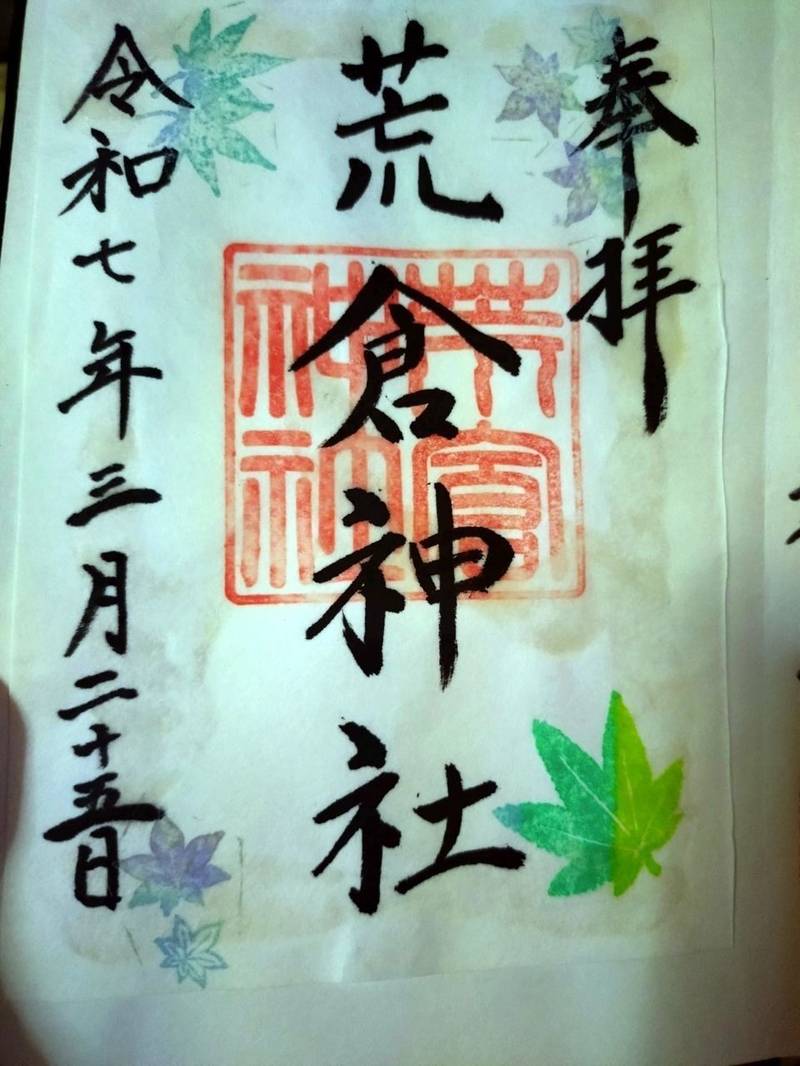 奉拝
荒倉神社
令和七年三月二十五日